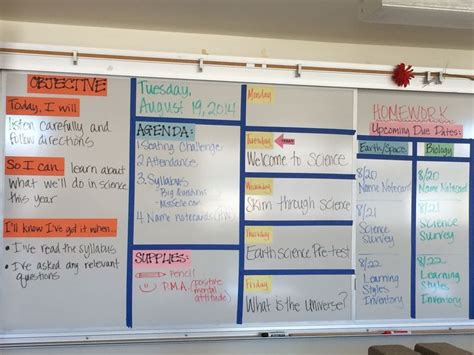 OBJECTIVE
Today, I will
listen carefully and
follow directions
So I can learn about
what we'll do in science
this year
I'll know I've got it when...
• I've read the syllabus
• I've asked any relevant
questions
Tuesday,
August 19, 2014
AGENDA:
1 Seating Challenge
2 Attendance
3. Syllabus
4. Name notecards (HW)
SUPPLIES:
pencil
P.M.A. (positive
mental
attitude)
Monday
Tuesday
Welcome to Science
Wednesday
Skim through science
Thursday
Earth science Pre-test
Friday
What is the Universe?
HOMEWORK
Upcoming Due Dates:
Earth/Space
8/20
Name Notecard
8/21
Science
Survey
8/22
Learning
Styles
Inventory
Biology
8/20
Name Notecard
8/21
Science
Survey
8/22
Learning
Styles
Inventory